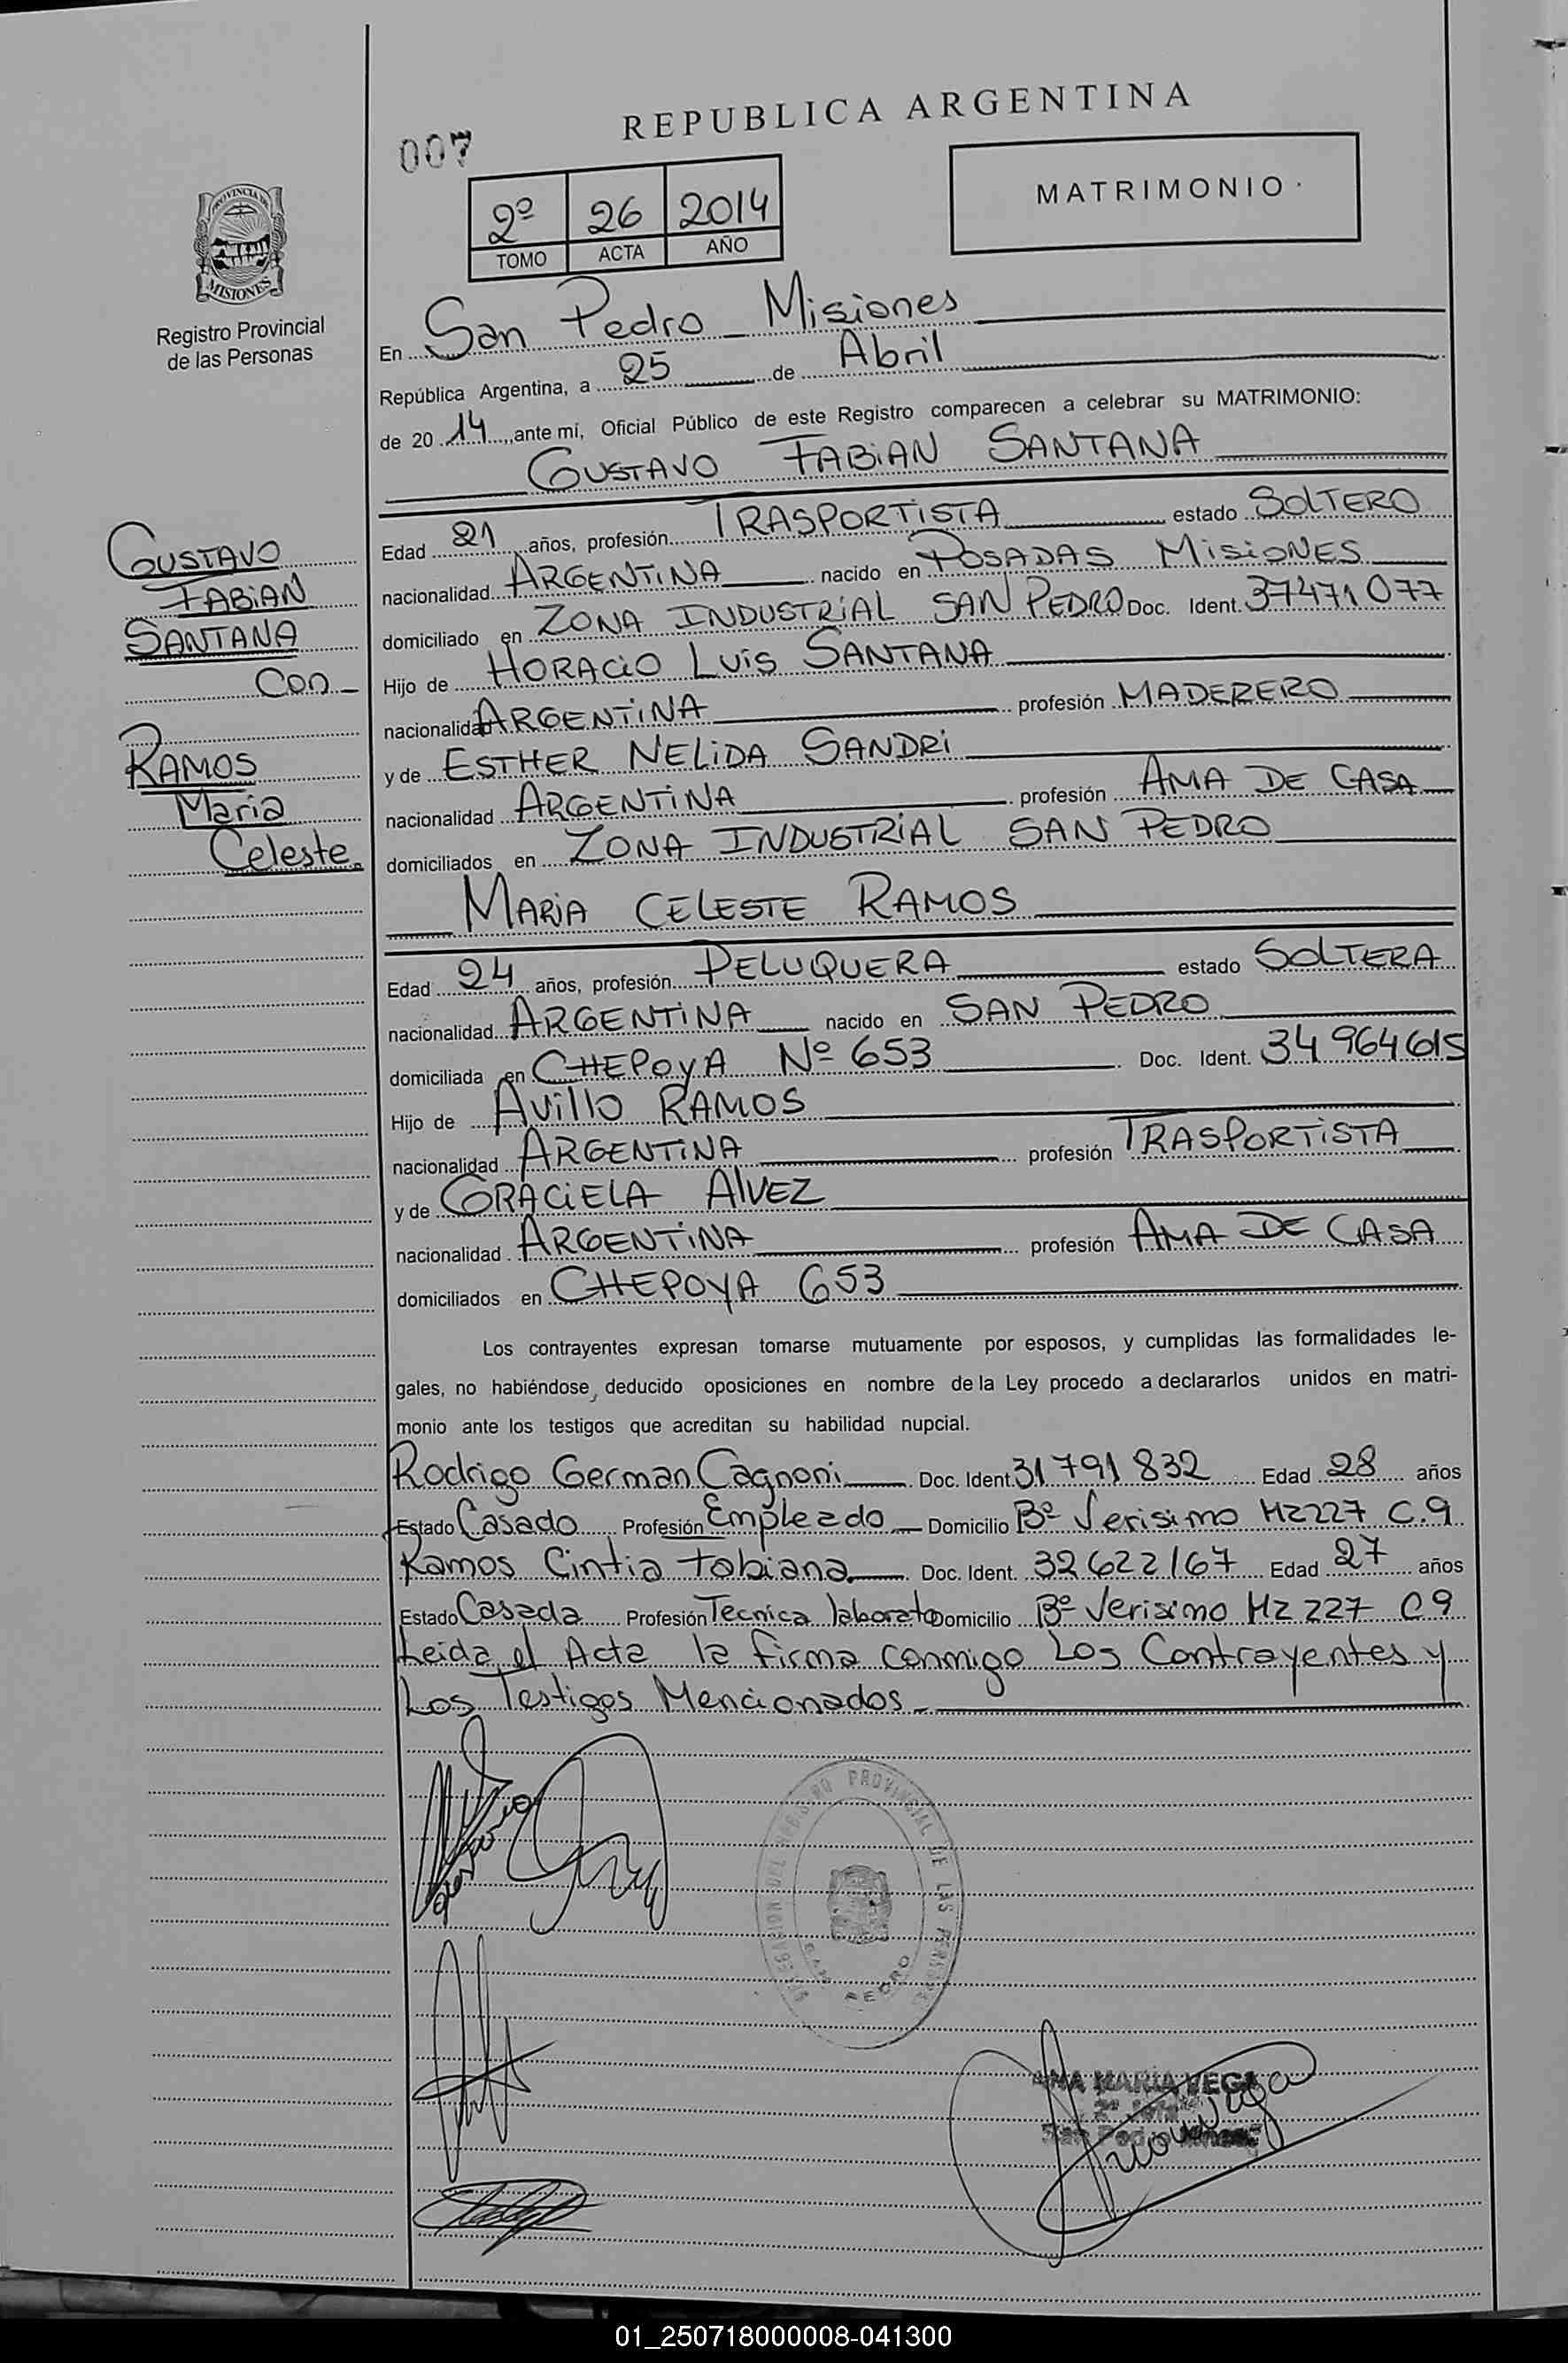 REPUBLICA ARGENTINA
007
MATRIMONIO
2º 26 2014
TOMO ACTA AÑO
PROVINCIA DE
MISIONES
Registro Provincial
de las Personas
En San Pedro Misiones
República Argentina, a 25 de Abril
de 20 14, ante mí, Oficial Público de este Registro comparecen a celebrar su MATRIMONIO:
GUSTAVO FABIAN SANTANA
Edad 21 años, profesión TRASPORTISTA estado SOLTERO
nacionalidad ARGENTINA nacido en POSADAS MISIONES
domiciliado en ZONA INDUSTRIAL SAN PEDRO Doc. Ident. 37471077
Hijo de HORACIO LUIS SANTANA
nacionalidad ARGENTINA profesión MADERERO
y de ESTHER NELIDA SANDRI
nacionalidad ARGENTINA profesión AMA DE CASA
domiciliados en ZONA INDUSTRIAL SAN PEDRO
MARIA CELESTE RAMOS
Edad 24 años, profesión PELUQUERA estado SOLTERA
nacionalidad ARGENTINA nacido en SAN PEDRO
domiciliada en CHEPOYA Nº 653 Doc. Ident. 34964615
Hijo de AVILLO RAMOS
nacionalidad ARGENTINA profesión TRASPORTISTA
y de GRACIELA ALVEZ
nacionalidad ARGENTINA profesión AMA DE CASA
domiciliados en CHEPOYA 653
GUSTAVO
FABIAN
SANTANA
Con
RAMOS
Maria
Celeste.
Los contrayentes expresan tomarse mutuamente por esposos, y cumplidas las formalidades le-
gales, no habiéndose deducido oposiciones en nombre de la Ley procedo a declararlos unidos en matri-
monio ante los testigos que acreditan su habilidad nupcial.
Rodrigo German Cagnoni Doc. Ident. 31791832 Edad 28 años
Estado Casado Profesión Empleado Domicilio Bº Verisimo Mz 227 C.9
Ramos Cintia Fabiana Doc. Ident. 32622167 Edad 27 años
Estado Casada Profesión Tecnica laborato Domicilio Bº Verisimo Mz 227 C9
Leida el Acta la firma conmigo Los Contrayentes y
Los Testigos Mencionados
REGISTRO PROVINCIAL DE LAS PERSONAS
SAN PEDRO
ANA MARIA VEGA
San Pedro
01_250718000008-041300